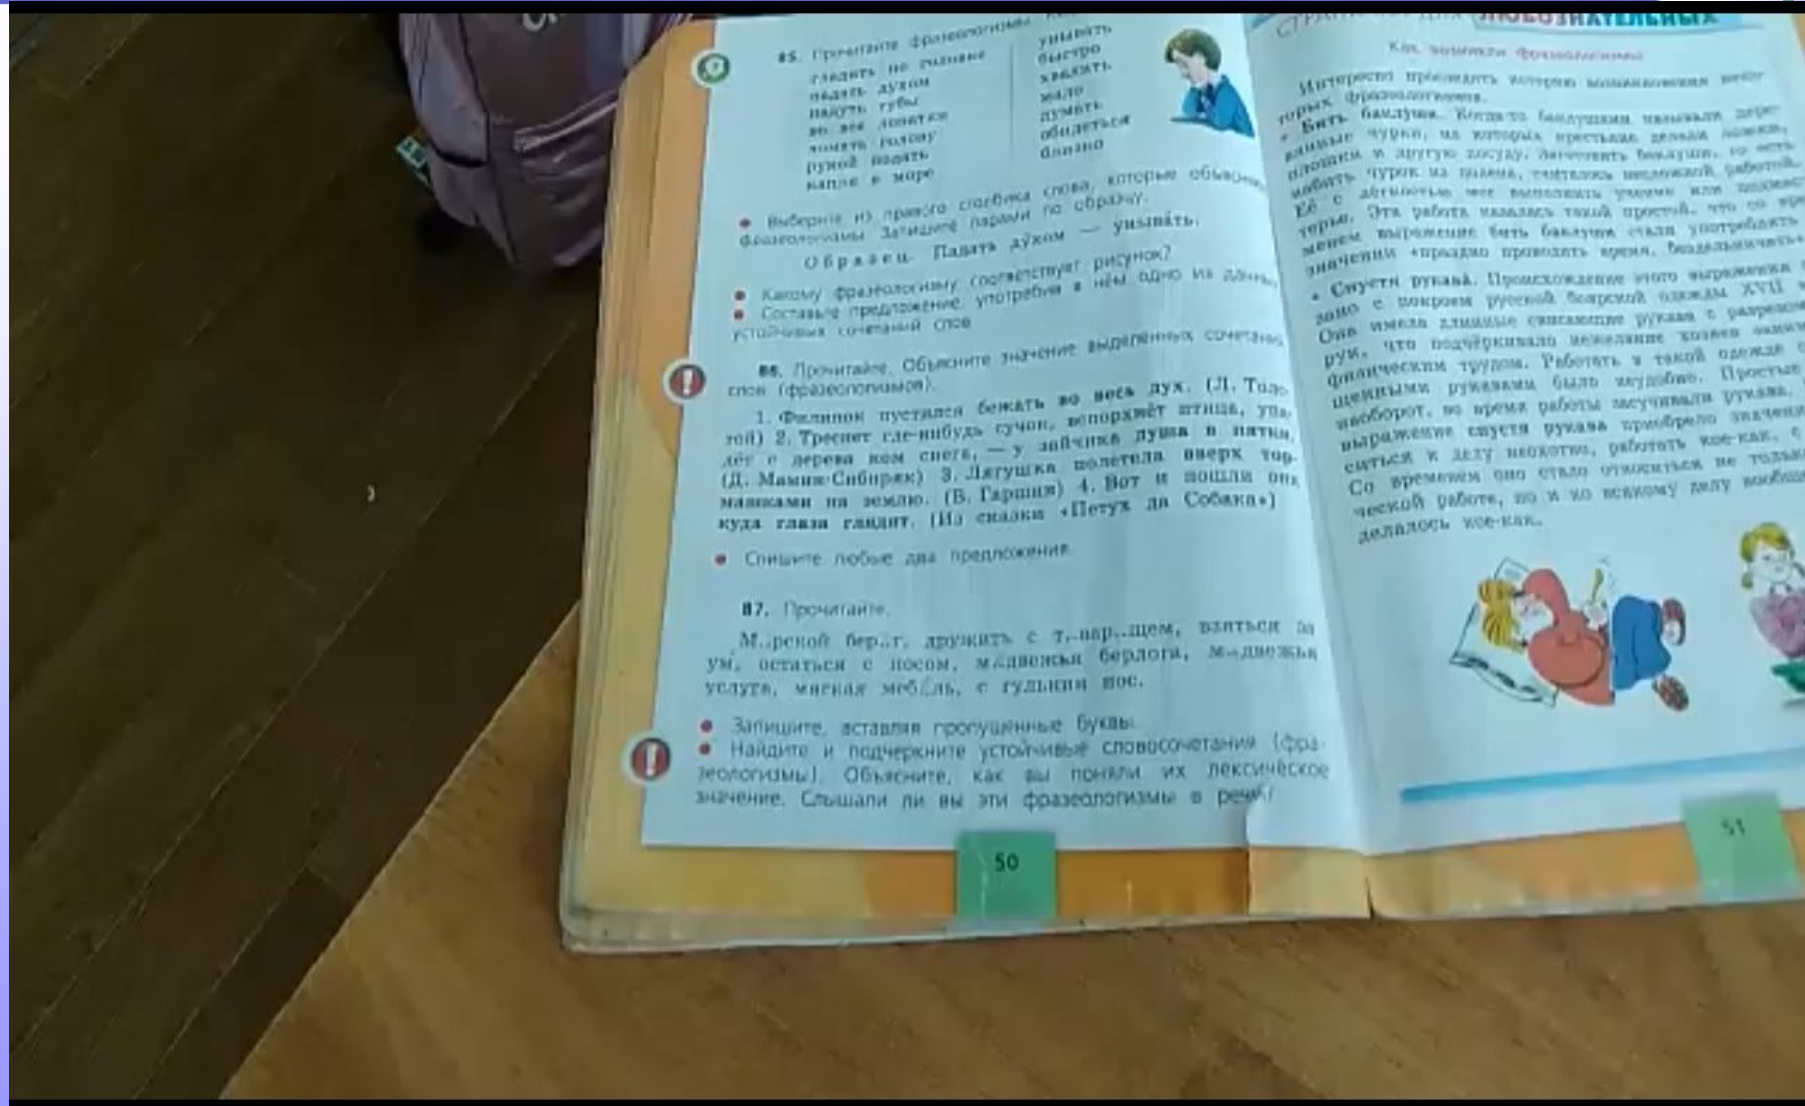 85. Прочитайте фразеологизмы
гладить по головке
падать духом
надуть губы
во все лопатки
ломать голову
рукой подать
капля в море
унывать
быстро
хвалить
мало
думать
обидеться
близко
• Выберите из правого столбика слова, которые
фразеологизмы. Запишите парами по образцу.
Образец. Падать ду́хом — уныва́ть.
• Какому фразеологизму соответствует рисунок?
• Составьте предложение, употребив в нём одно из данных
устойчивых сочетаний слов.
86. Прочитайте. Объясните значение выделенных сочетаний
слов (фразеологизмов).
1. Филипок пустился бежать во весь дух. (Л. Толс-
той) 2. Треснет где-нибудь сучок, вспорхнёт птица, упа-
дёт с дерева ком снега, — у зайчика душа в пятки.
(Д. Мамин-Сибиряк) 3. Лягушка полетела вверх тор-
машками на землю. (В. Гаршин) 4. Вот и пошли они
куда глаза глядят. (Из сказки «Петух да Собака»)
• Спишите любые два предложения.
87. Прочитайте.
М..рской бер..г, дружить с т..вар..щем, взяться за
ум, остаться с носом, медвежья берлога, медвежья
услуга, мягкая меб..ль, с гулькин нос.
• Запишите, вставляя пропущенные буквы.
• Найдите и подчеркните устойчивые словосочетания (фра-
зеологизмы). Объясните, как вы поняли их лексическое
значение. Слышали ли вы эти фразеологизмы в речи?
50
СТРАНИЧКА ДЛЯ ЛЮБОЗНАТЕЛЬНЫХ
Как возникли фразеологизмы
Интересно проследить историю возникновения неко-
торых фразеологизмов.
• Бить баклуши. Когда-то баклушами называли дере-
вянные чурки, из которых крестьяне делали ложки,
плошки и другую посуду. Заготовить баклуши, то есть
набить чурок из полена, считалось несложной работой.
Её с лёгкостью мог выполнить ученик или
Эта работа казалась такой простой, что со вре-
менем выражение бить баклуши стали употреблять
значении «праздно проводить время, бездельничать».
• Спустя рукава. Происхождение этого выражения
с покроем русской боярской одежды XVII
Она имела длинные свисающие рукава с разрезом
рук, что подчёркивало нежелание хозяев
физическим трудом. Работать в такой одежде с
рукавами было неудобно. Простые
наоборот, во время работы засучивали рукава.
выражение спустя рукава приобрело значение
к делу неохотно, работать кое-как, с
Со временем оно стало относиться не только
ческой работе, но и ко всякому делу вообще
делалось кое-как.
51